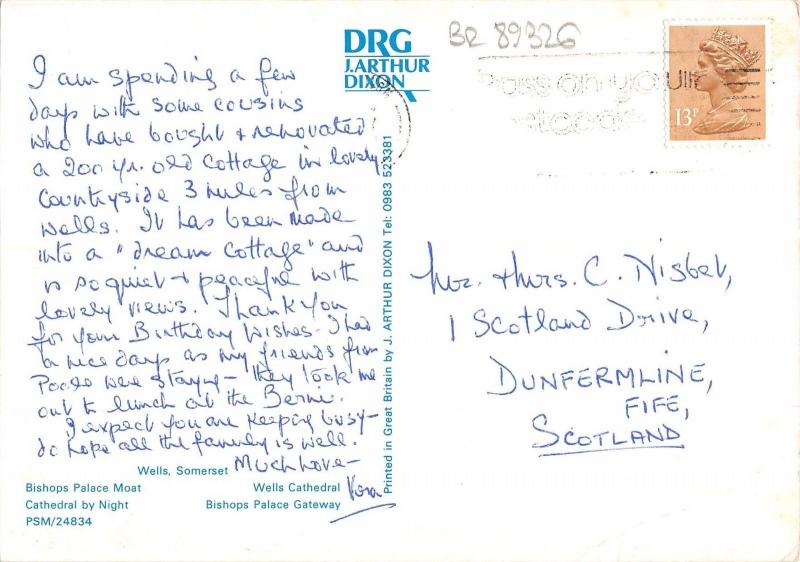 DRG
J. ARTHUR
DIXON
BR 89326
pass on your
13P
I am spending a few
days with some cousins
who have bought & renovated
a 200 yr. old cottage in lovely
countryside 3 miles from
Wells. It has been made
into a "dream cottage" and
is so quiet & peaceful with
lovely views. Thank you
for your Birthday Wishes. I had
a nice days as my friends from
Poole were staying - they took me
out to lunch at the Berni.
I expect you are keeping busy -
do hope all the family is well.
Much love -
Vera
Mr. & Mrs. C. Nisbet,
1 Scotland Drive,
DUNFERMLINE,
FIFE,
SCOTLAND
Printed in Great Britain by J. ARTHUR DIXON Tel: 0983 523381
Wells, Somerset
Bishops Palace Moat Wells Cathedral
Cathedral by Night Bishops Palace Gateway
PSM/24834